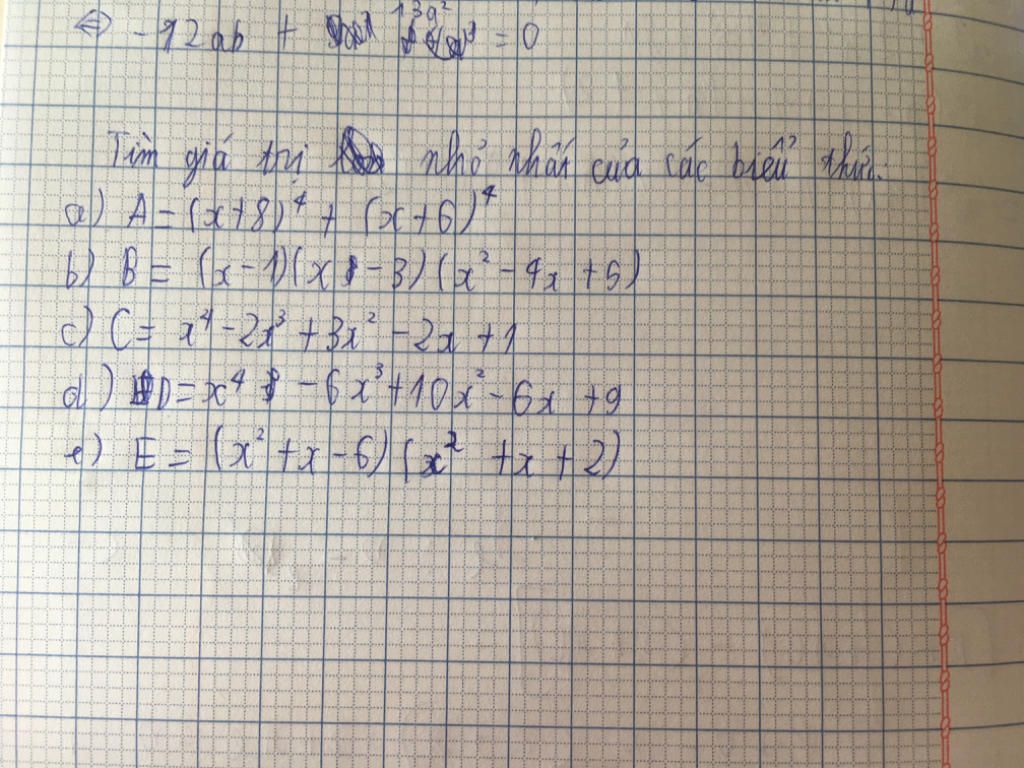 ⇔ -12ab + 13a² = 0
Tìm giá trị nhỏ nhất của các biểu thức.
a) A = (x+8)⁴ + (x+6)⁴
b) B = (x-1)(x-3)(x² - 4x + 5)
c) C = x⁴ - 2x³ + 3x² - 2x + 1
d) D = x⁴ - 6x³ + 10x² - 6x + 9
e) E = (x² + x - 6)(x² + x + 2)